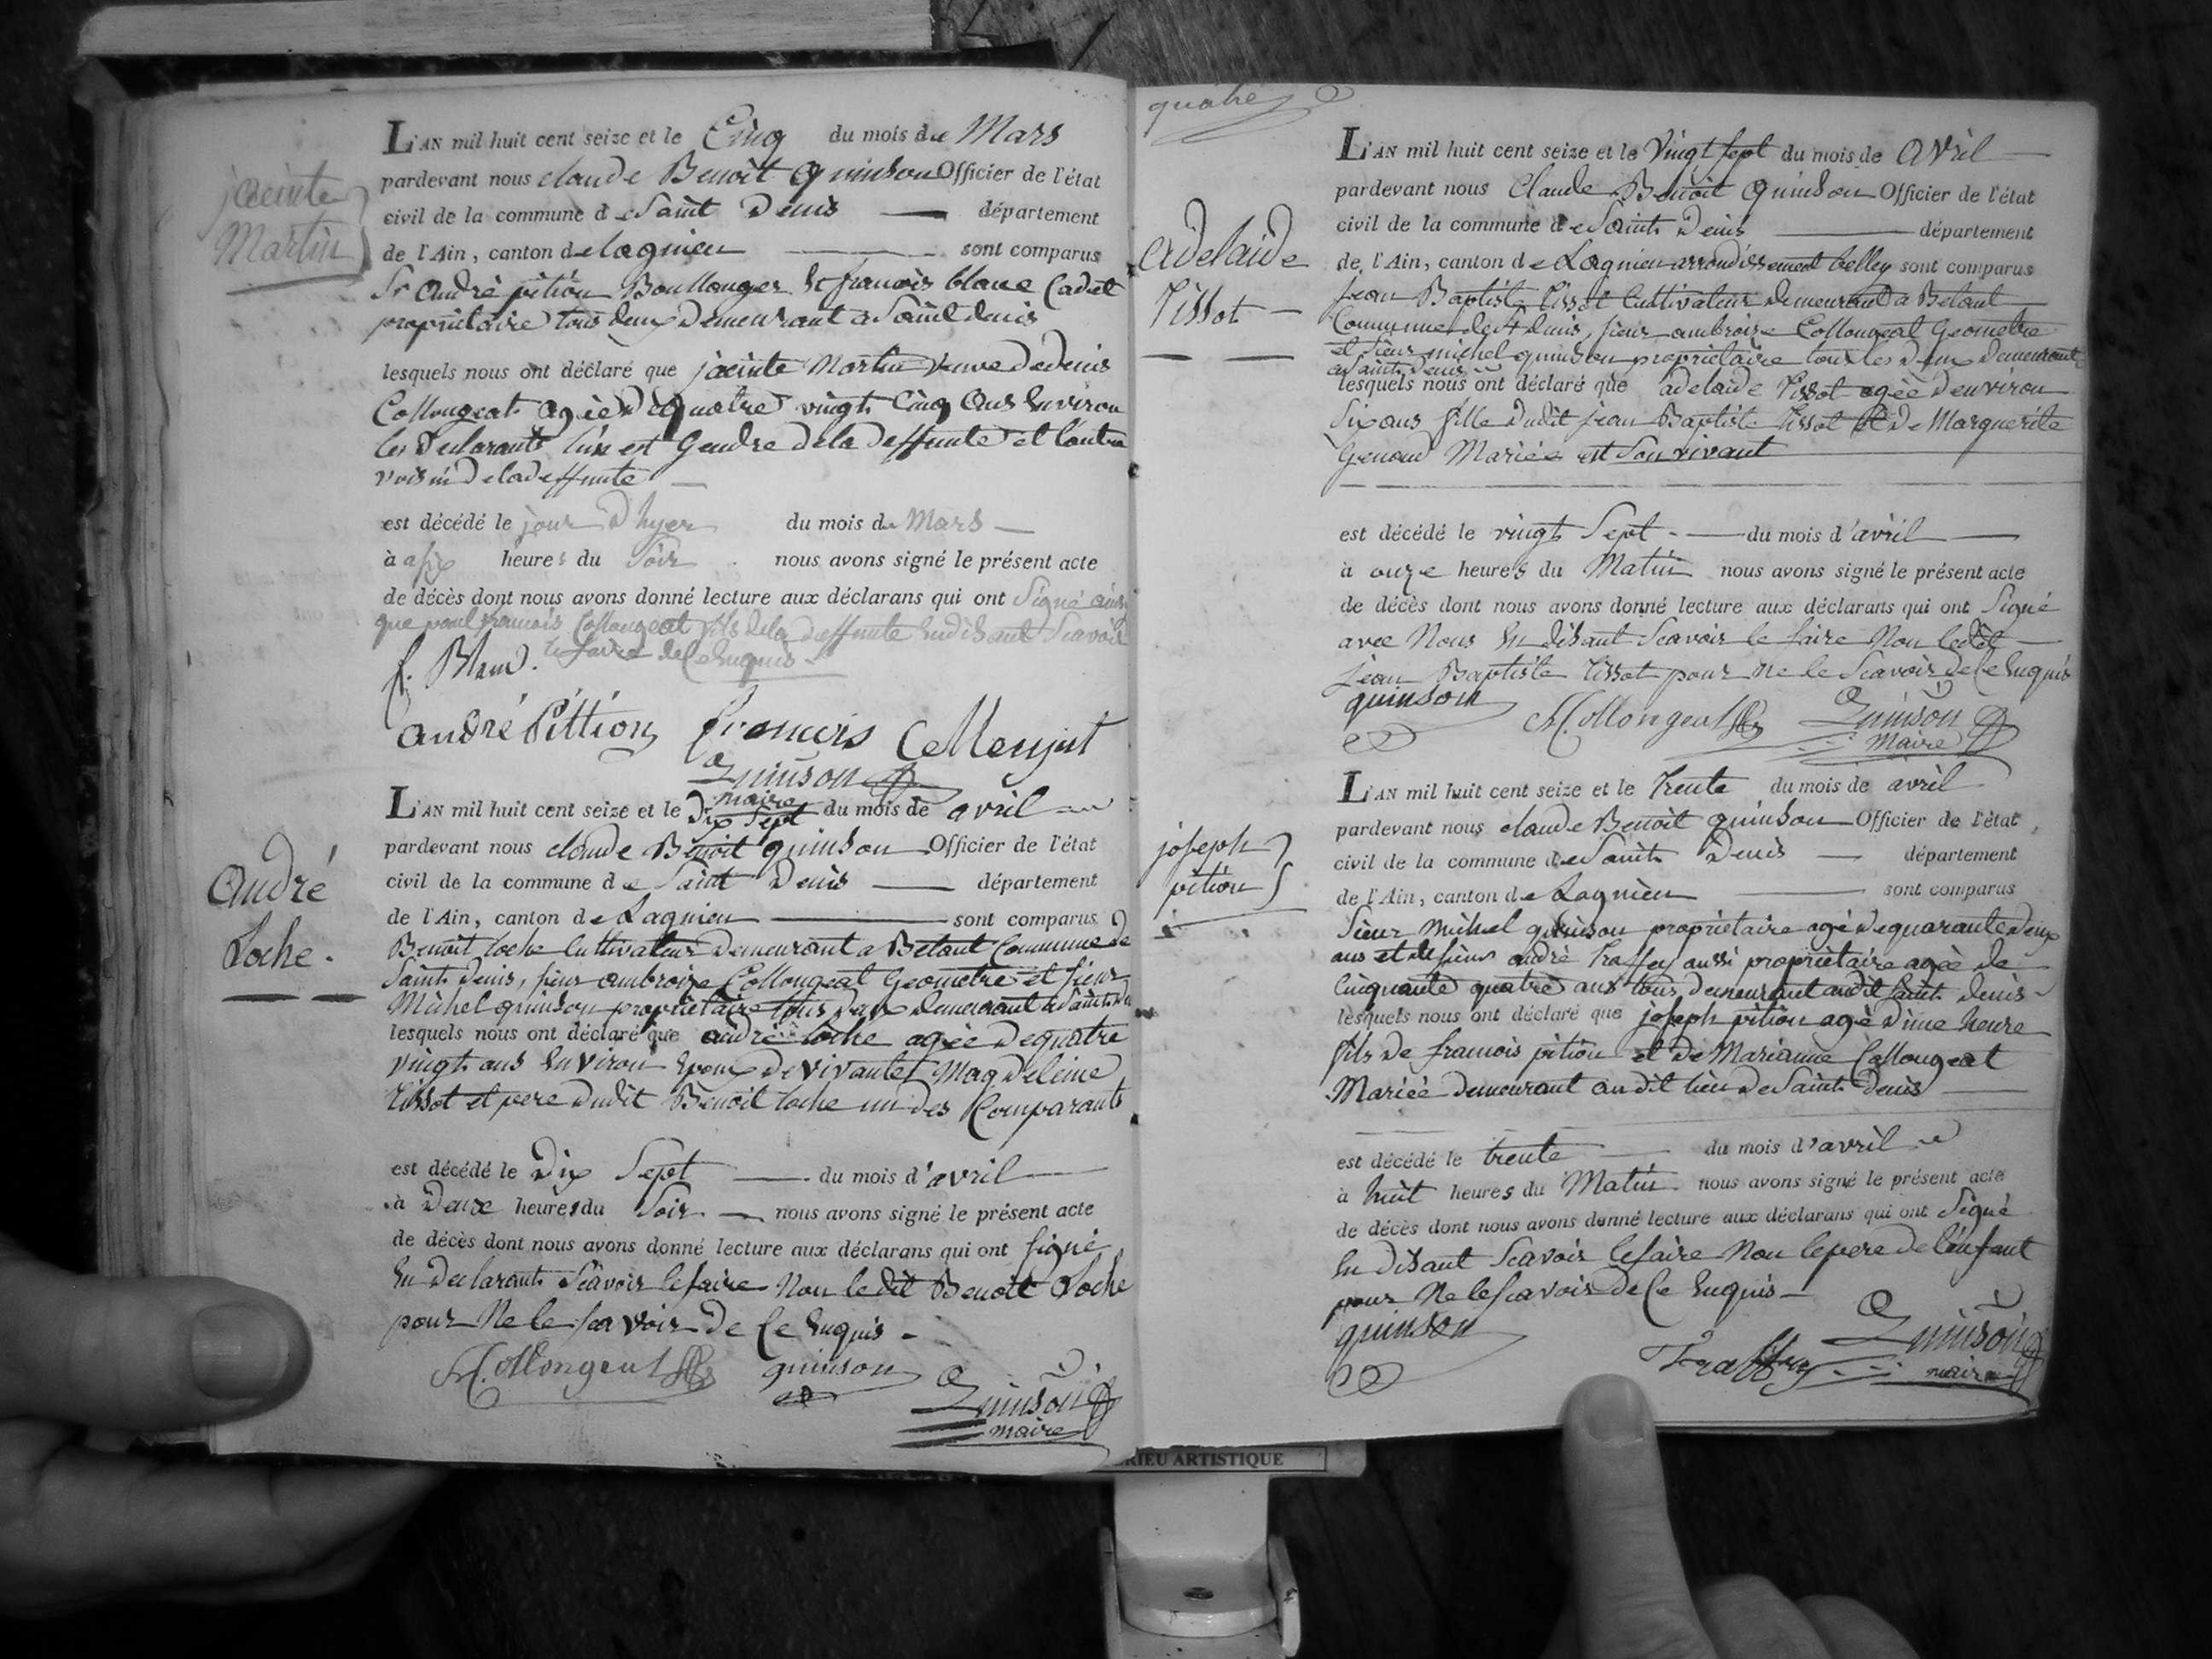 jacinte
Martin
L'AN mil huit cent seize et le Cinq du mois de Mars
pardevant nous claude Benoit quinson Officier de l'état
civil de la commune de Saint Denis département
de l'Ain, canton de lagnieu sont comparus
Sr andré pition Boullanger et francois blanc Cadet
propriétaire tous deux Demeurant a Saint denis
lesquels nous ont déclaré que jacinte Martin veuve de denis
Collongeat agée de quatre vingt Cinq ans Environ
les Declarants l'un est Gendre de la deffunte et l'autre
voisin de la deffunte
est décédé le jour D'hyer du mois de Mars
à a six heures du Soir nous avons signé le présent acte
de décès dont nous avons donné lecture aux déclarans qui ont Signé ainsi
que paul francois Collongeat fils de la deffunte En disant Scavoir
le faire de Ce Enquis
f. Blanc.
andré Pittion francois Collonjat
Quinson
maire
André
Loche.
L'AN mil huit cent seize et le Dix Sept du mois de avril
pardevant nous claude Benoit quinson Officier de l'état
civil de la commune de Saint Denis département
de l'Ain, canton de Lagnieu sont comparus
Benoit loche Cultivateur Demeurant a Betant Commune de
Saint Denis, sieur ambroize Collongeat Geometre et sieur
Michel quinson propriétaire tous deux demeurant a Saint
lesquels nous ont déclaré que andré loche agée de quatre
vingt ans Environ Epoux de vivante Magdeleine
Tissot et pere dudit Benoit loche un des Comparants
est décédé le Dix Sept du mois d'avril
à Deux heures du Soir nous avons signé le présent acte
de décès dont nous avons donné lecture aux déclarans qui ont signé
En declarant Scavoir le faire Non le dit Benoit Loche
pour Ne le scavoir de Ce Enquis
Collongeat quinson
Quinson
maire
quatre
adelaide
Tissot
L'AN mil huit cent seize et le Vingt sept du mois de avril
pardevant nous Claude Benoit quinson Officier de l'état
civil de la commune de Saint Denis département
de l'Ain, canton de Lagnieu arrondissement belley sont comparus
jean Baptiste tissot Cultivateur demeurant a Betant
Commune de St denis, sieur ambroize Collongeat Geometre
et sieur michel quinson propriétaire tous les deux demeurant
a Saint Denis
lesquels nous ont déclaré que adelaide Tissot agée d'environ
Six ans fille dudit jean Baptiste tissot et de Marguerite
Genoud Mariée et Son vivant
est décédé le vingt Sept du mois d'avril
à onze heures du Matin nous avons signé le présent acte
de décès dont nous avons donné lecture aux déclarans qui ont Signé
avec Nous En disant Scavoir le faire Non ledit
jean Baptiste Tissot pour ne le Scavoir de Ce Enquis
quinson Collongeat Quinson
Maire
joseph
pition
L'AN mil huit cent seize et le Trente du mois de avril
pardevant nous claude Benoit quinson Officier de l'état
civil de la commune de Saint Denis département
de l'Ain, canton de Lagnieu sont comparus
Sieur Michel quinson propriétaire agé de quarante deux
ans et de sieur andré Traffey aussi propriétaire agée de
Cinquante quatre ans tous demeurant audit Saint Denis
lesquels nous ont déclaré que joseph pition agé d'une heure
fils de francois pition et de Marianne Collongeat
Mariée demeurant au dit lieu de Saint Denis
est décédé le trente du mois d'avril
à huit heures du Matin nous avons signé le présent acte
de décès dont nous avons donné lecture aux déclarans qui ont Signé
En disant Scavoir le faire Non le pere de l'enfant
pour Ne le scavoir de Ce Enquis
quinson
Traffey Quinson
maire
RIEU ARTISTIQUE